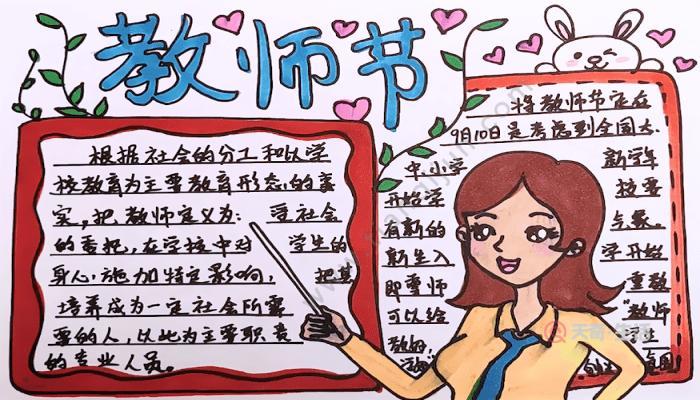 教师节
根据社会的分工和以学
校教育为主要教育形态的事
实,把教师定义为: 受社会
的委托,在学校中对 学生的
身心施加特定影响, 把其
培养成为一定社会所需
要的人,以此为主要职责
的专业人员。
将教师节定在
9月10日是考虑到全国大、
中、小学 新学年
开始学 校要
有新的 气象。
新生入 学开始
即尊师 重教
可以给 "教师
教好,
天奇 生活